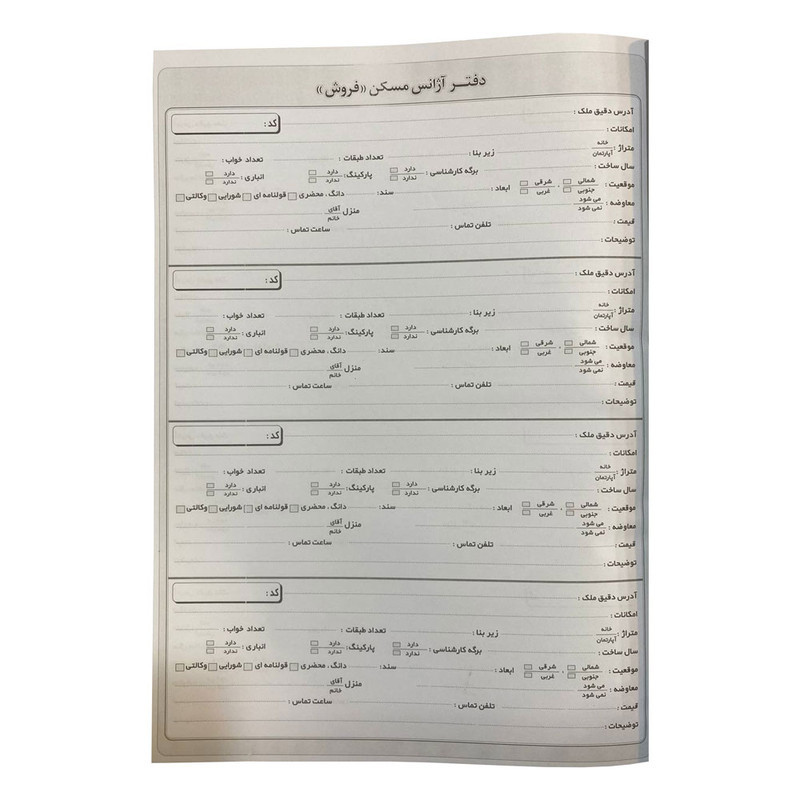 دفتـر آژانس مسکن «فروش»
آدرس دقیق ملک : کد :
امکانات :
متراژ : خانه آپارتمان زیر بنا : تعداد طبقات : تعداد خواب :
سال ساخت : برگه کارشناسی : دارد ندارد پارکینگ : دارد ندارد انباری : دارد ندارد
موقعیت : شمالی جنوبی ، شرقی غربی ابعاد : سند: دانگ ، محضری قولنامه ای شورایی وکالتی
معاوضه : می شود نمی شود منزل آقای خانم
قیمت : تلفن تماس : ساعت تماس :
توضیحات :
آدرس دقیق ملک : کد :
امکانات :
متراژ : خانه آپارتمان زیر بنا : تعداد طبقات : تعداد خواب :
سال ساخت : برگه کارشناسی : دارد ندارد پارکینگ : دارد ندارد انباری : دارد ندارد
موقعیت : شمالی جنوبی ، شرقی غربی ابعاد : سند: دانگ ، محضری قولنامه ای شورایی وکالتی
معاوضه : می شود نمی شود منزل آقای خانم
قیمت : تلفن تماس : ساعت تماس :
توضیحات :
آدرس دقیق ملک : کد :
امکانات :
متراژ : خانه آپارتمان زیر بنا : تعداد طبقات : تعداد خواب :
سال ساخت : برگه کارشناسی : دارد ندارد پارکینگ : دارد ندارد انباری : دارد ندارد
موقعیت : شمالی جنوبی ، شرقی غربی ابعاد : سند: دانگ ، محضری قولنامه ای شورایی وکالتی
معاوضه : می شود نمی شود منزل آقای خانم
قیمت : تلفن تماس : ساعت تماس :
توضیحات :
آدرس دقیق ملک : کد :
امکانات :
متراژ : خانه آپارتمان زیر بنا : تعداد طبقات : تعداد خواب :
سال ساخت : برگه کارشناسی : دارد ندارد پارکینگ : دارد ندارد انباری : دارد ندارد
موقعیت : شمالی جنوبی ، شرقی غربی ابعاد : سند: دانگ ، محضری قولنامه ای شورایی وکالتی
معاوضه : می شود نمی شود منزل آقای خانم
قیمت : تلفن تماس : ساعت تماس :
توضیحات :